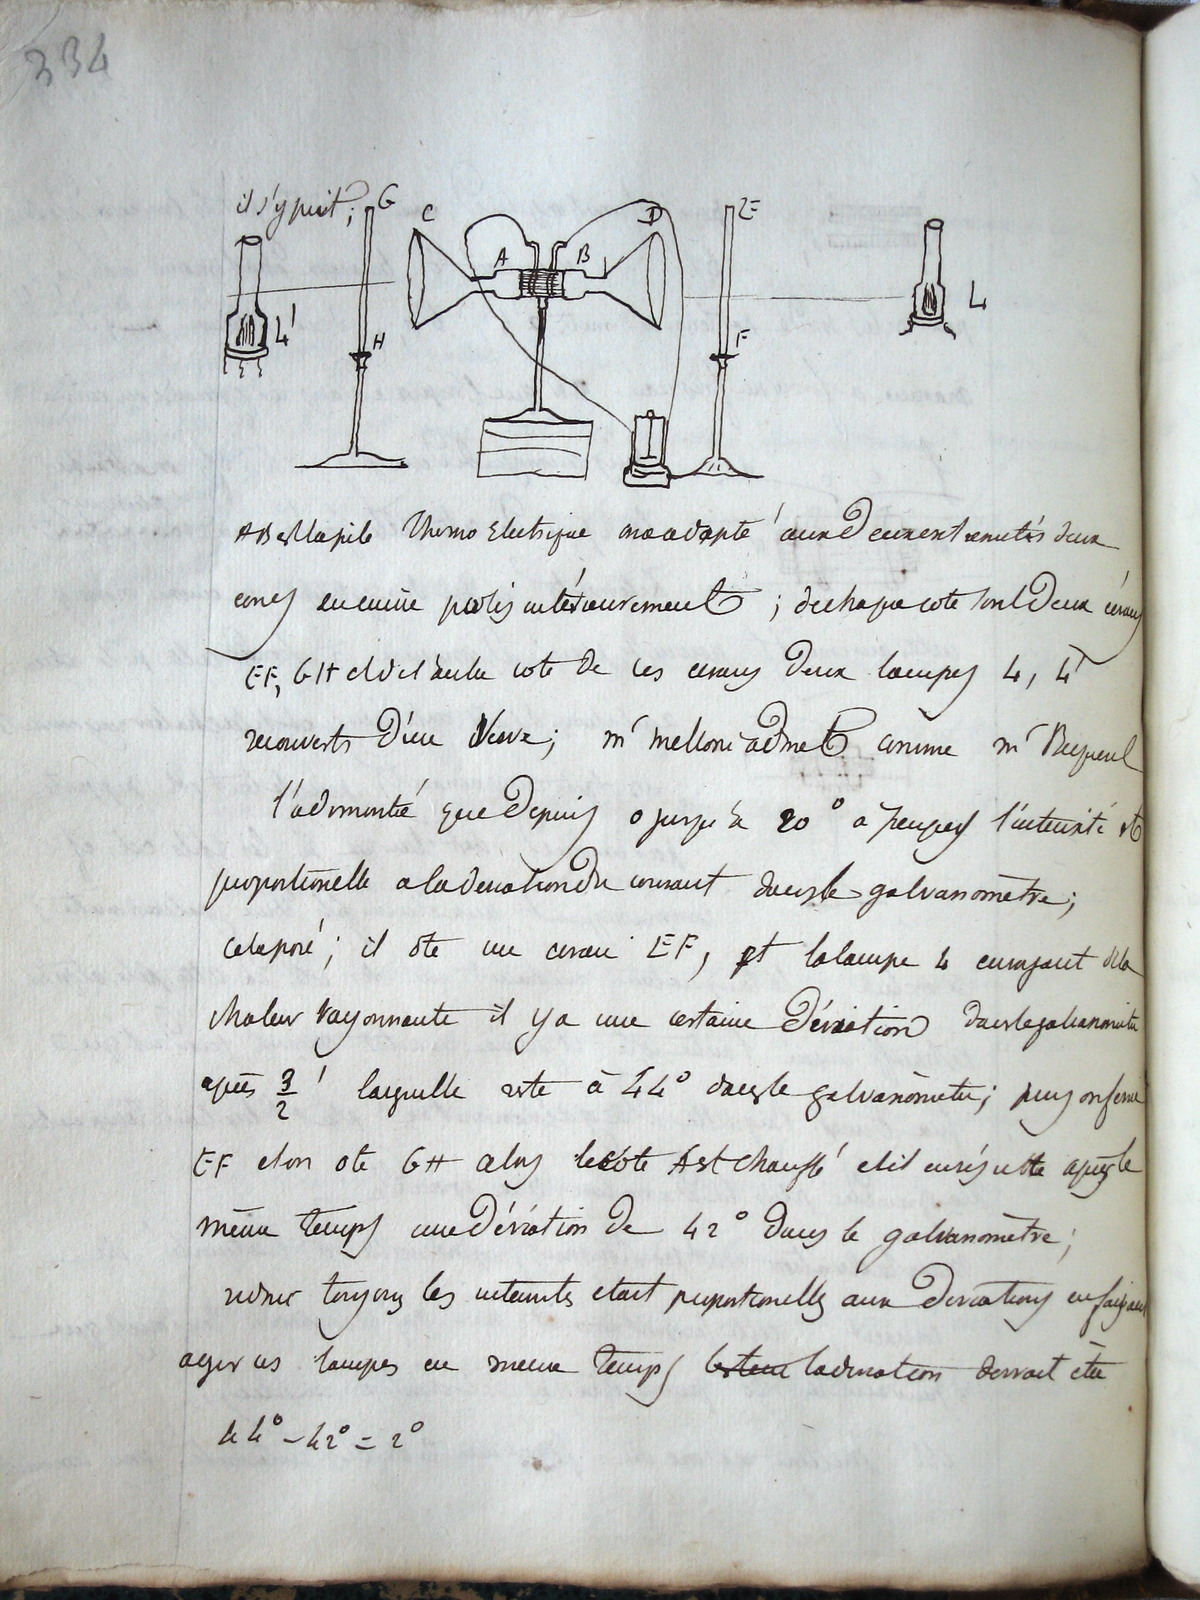 334
il s'y prit; G C D E
A B
L' H F L
AB est la pile thermo Electrique on a adapté aux Deux extremités deux
cones en cuivre polis intérieurement; de chaque coté sont Deux écrans
EF, GH et de l'autre coté de ces ecrans Deux lampes L, L'
recouverts D'un Verre; mr melloni admet comme mr Becquerel
l'a demontré que Depuis 0 jusqu'a 20° a peu pres l'intensité est
proportionelle a la deviation Du courant dans le galvanomètre;
cela posé; il ote un ecran EF, et la lampe L envoyant de la
chaleur rayonnante il y a une certaine Déviation dans le galvanometre
après 3/2 ' laquelle reste à 44° dans le galvanomètre; puis on ferme
EF et on ote GH alors le coté A est chauffé et il en résulte après le
même temps une Déviation de 42° dans le galvanomètre;
toujours les intensités etant proportionelles aux Deviations en faisant
agir ces lampes en meme temps la deviation devrait être
44° – 42° = 2°